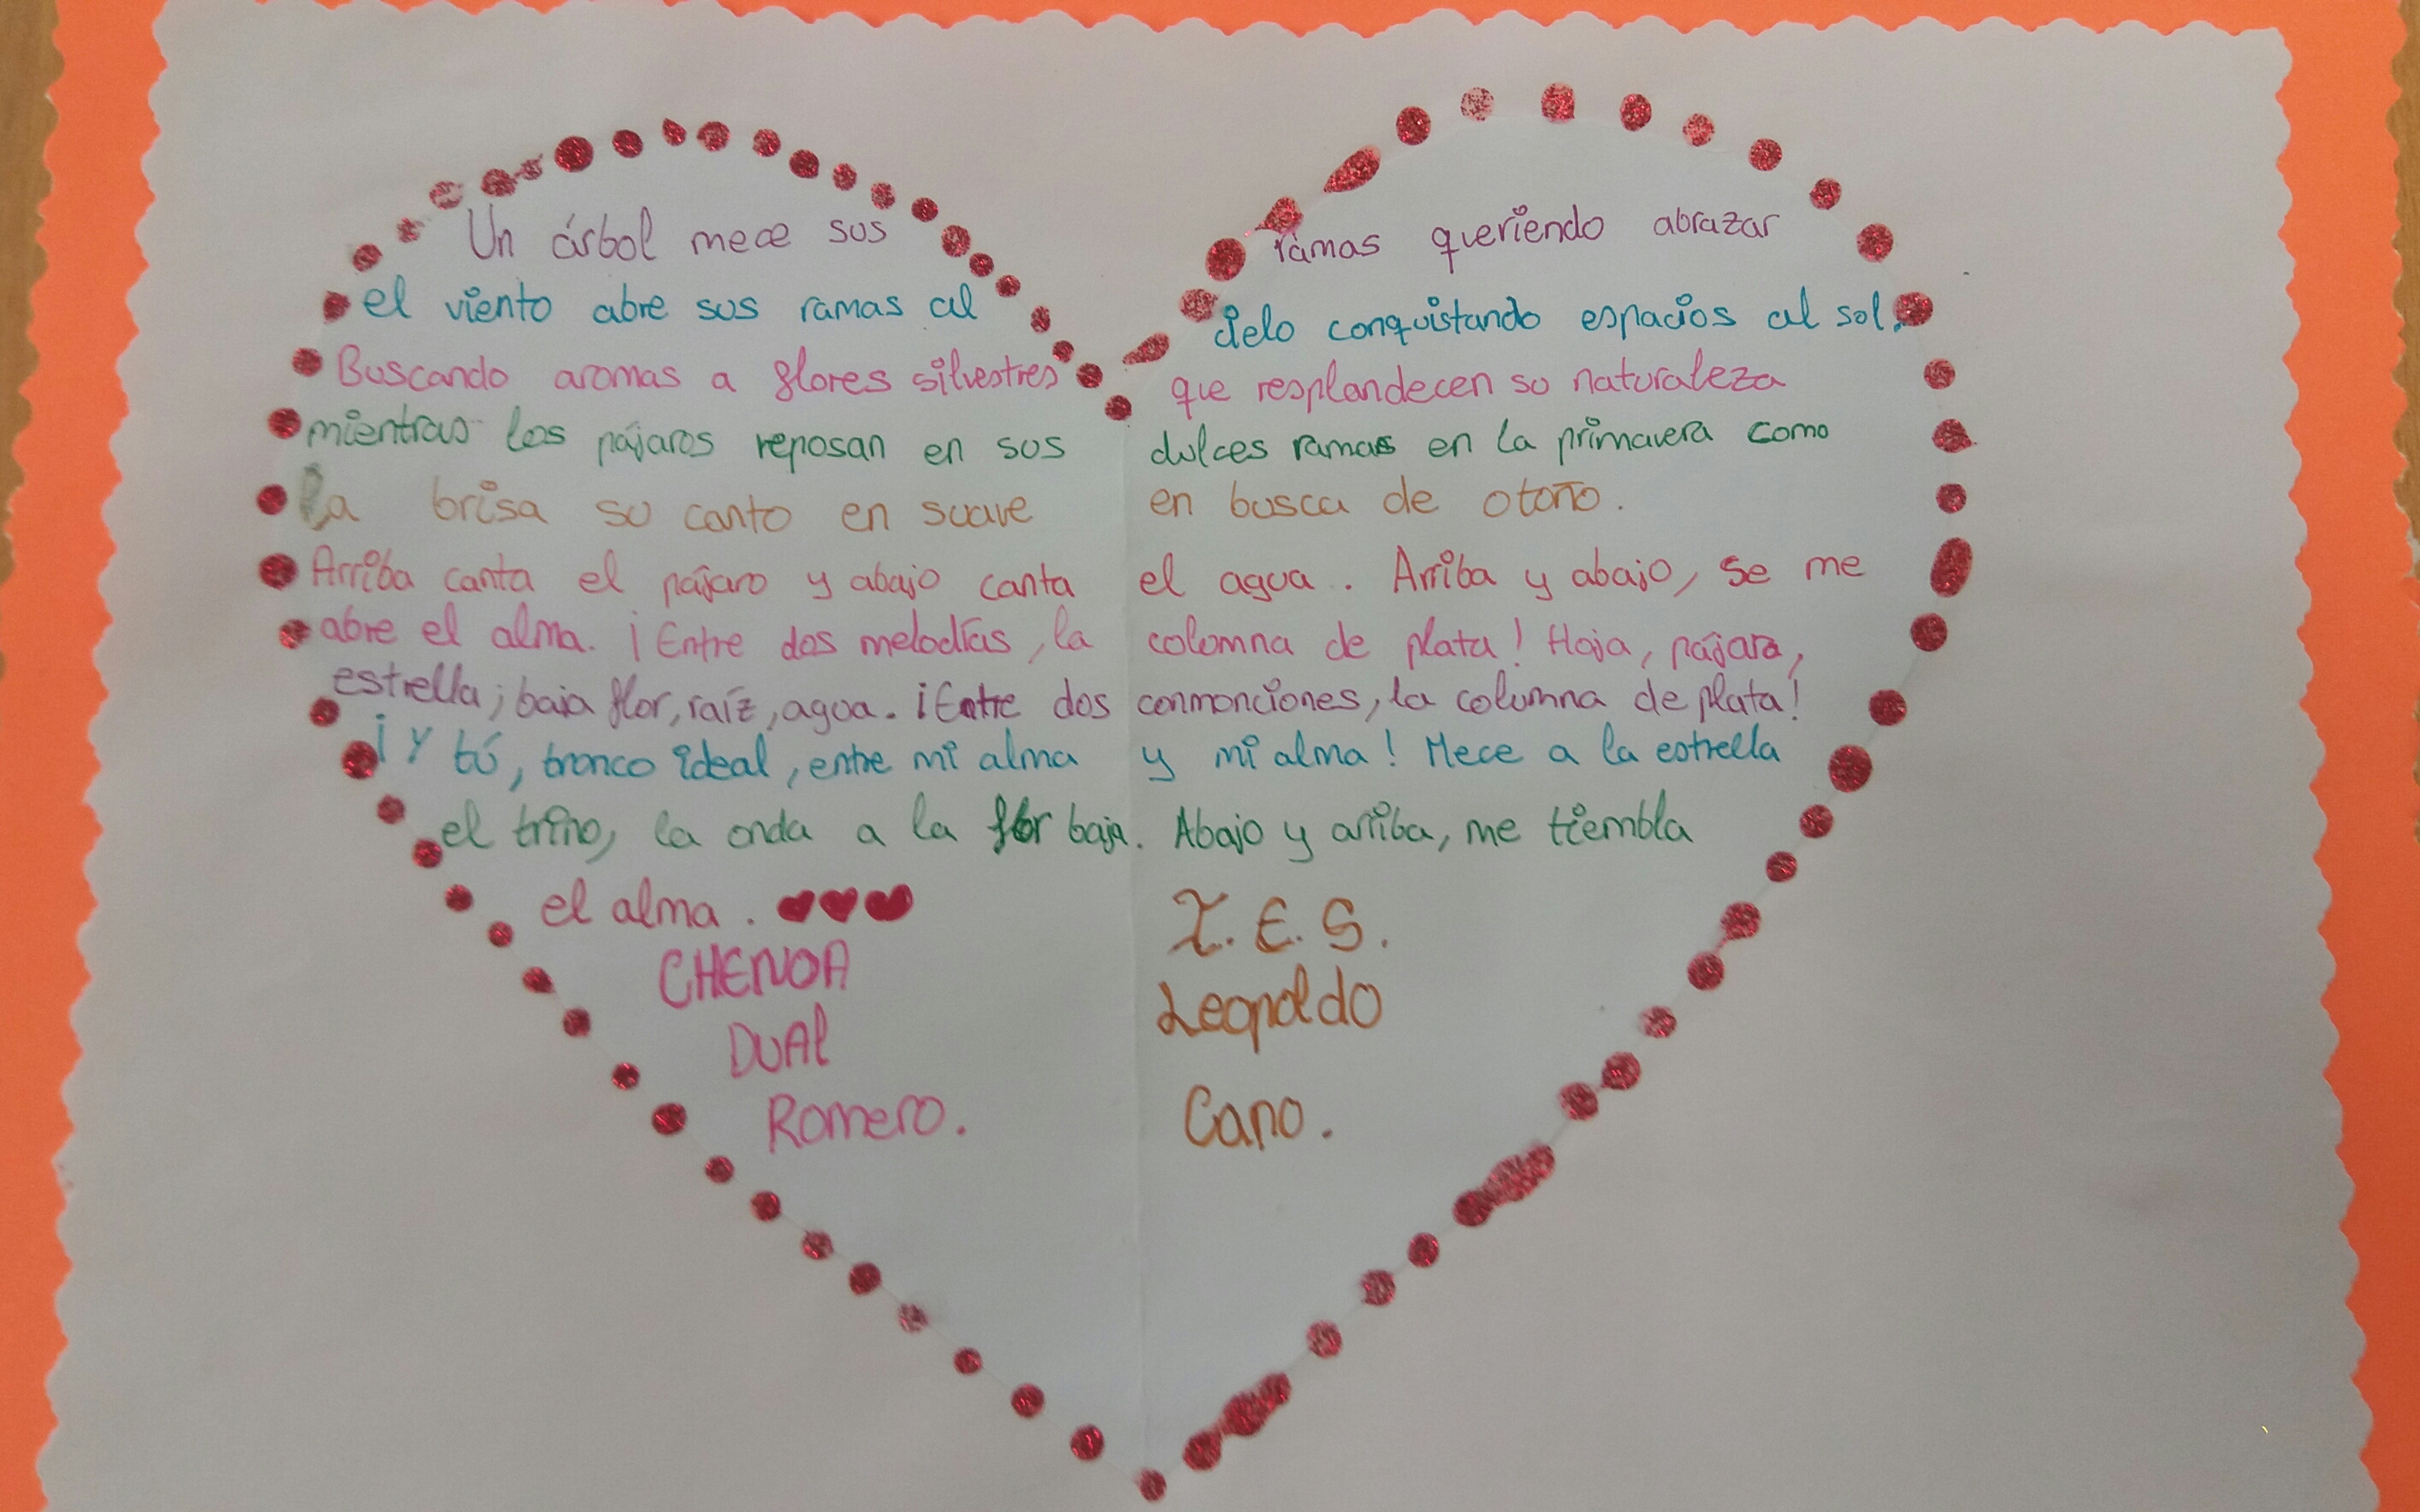 Un árbol mece sus ramas queriendo abrazar
el viento abre sus ramas al cielo conquistando espacios al sol.
Buscando aromas a flores silvestres que resplandecen su naturaleza
mientras los pájaros reposan en sus dulces ramas en la primavera como
La brisa su canto en suave en busca de otoño.
Arriba canta el pájaro y abajo canta el agua. Arriba y abajo, se me
abre el alma. ¡Entre dos melodías, la columna de plata! Hoja, pájara,
estrella; baja flor, raíz, agua. ¡Entre dos conmonciones, la columna de plata!
¡Y tú, tronco ideal, entre mi alma y mi alma! Mece a la estrella
el trino, la onda a la flor baja. Abajo y arriba, me tiembla
el alma.
CHENOA
DUAl
Romero.
I.E.S.
Leopoldo
Cano.